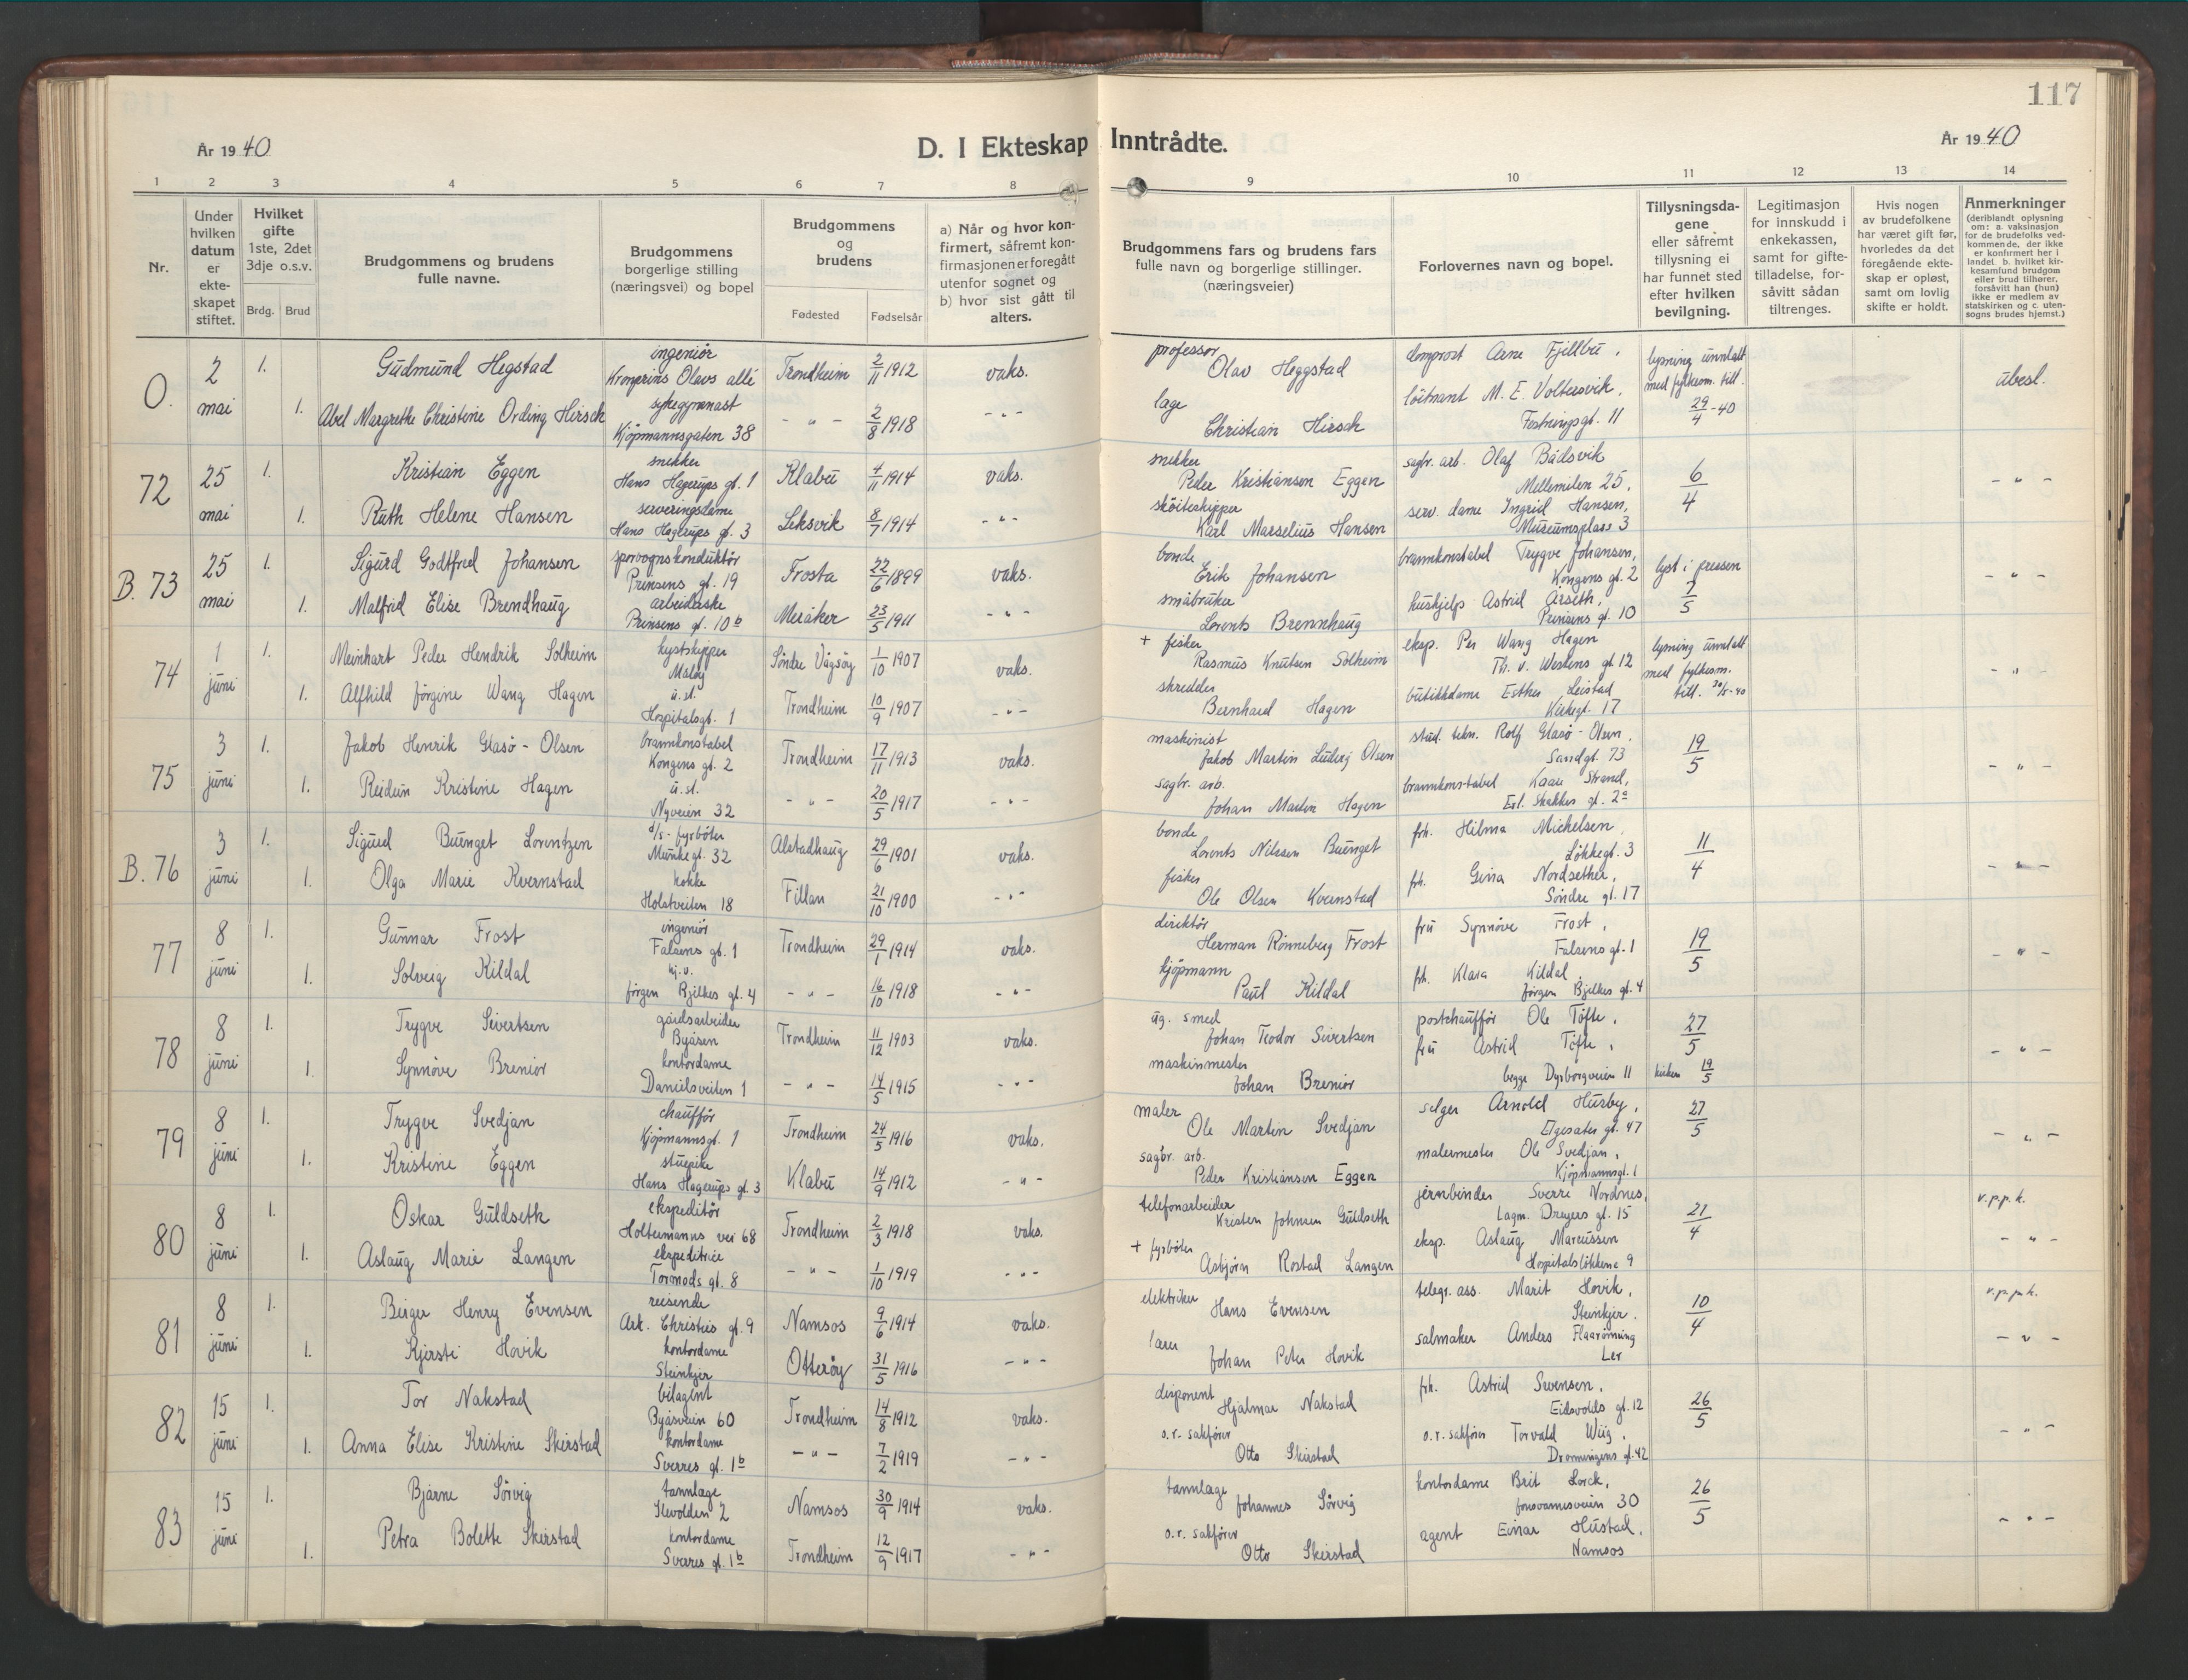 117
År 1940
D. I Ekteskap Inntrådte.
År 1940
1 2 3 4 5 6 7 8 9 10 11 12 13 14
Nr.
Under hvilken datum er ekteskapet stiftet.
Hvilket gifte 1ste, 2det 3dje o.s.v.
Brdg. Brud
Brudgommens og brudens fulle navne.
Brudgommens borgerlige stilling (næringsvei) og bopel
Brudgommens og brudens
Fødested Fødselsår
a) Når og hvor konfirmert, såfremt konfirmasjonen er foregått utenfor sognet og b) hvor sist gått til alters.
Brudgommens fars og brudens fars fulle navn og borgerlige stillinger. (næringsveier)
Forlovernes navn og bopel.
Tillysningsdagene eller såfremt tillysning ei har funnet sted efter hvilken bevilgning.
Legitimasjon for innskudd i enkekassen, samt for giftetilladelse, forsåvitt sådan tiltrenges.
Hvis nogen av brudefolkene har været gift før, hvorledes da det foregående ekteskap er opløst, samt om lovlig skifte er holdt.
Anmerkninger (deriblandt oplysning om: a. vaksinasjon for de brudefolks vedkommende, der ikke er konfirmert her i landet b. hvilket kirkesamfund brudgom eller brud tilhører, forsåvitt han (hun) ikke er medlem av statskirken og c. utensogns brudes hjemst.)
O. 2 mai 1. Gudmund Hegstad ingeniør Kronprins Olavs allé Trondheim 2/11 1912 vaks. professor Olav Heggstad domprost Arne Fjellbu, lysning unnlatt med fylkesm. till. 29/4-40 ubesl.
1. Abel Margrethe Christine Ording Hirsch sykegymnast Kjöpmannsgaten 38 - " - 2/8 1918 - " - lege Christian Hirsch löitnant M. E. Voltersvik, Festningsgt. 11
72 25 mai 1. Kristian Eggen snekker Hans Hagerups gt. 1 Klæbu 4/11 1914 vaks. snekker Peder Kristiansen Eggen sagbr. arb. Olaf Bådsvik Mellemilen 25, 6/4 - " -
1. Ruth Helene Hansen serveringsdame Hans Hagerups gt. 3 Leksvik 8/7 1914 - " - sköiteskipper Karl Marselius Hansen serv. dame Ingrid Hansen, Museumsplass 3
B. 73 25 mai 1. Sigurd Godtfred Johansen sporvognskonduktör Prinsens gt. 19 Frosta 22/6 1899 vaks. bonde Erik Johansen brannkonstabel Trygve Johansen, Kongens gt. 2 lyst i pressen 7/5 - " -
1. Malfrid Elise Brendhaug arbeiderske Prinsens gt. 10b Meråker 23/5 1911 - " - småbruker Lorents Brennhaug hushjelp Astrid Årseth, Prinsens gt. 10
74 1 juni 1. Meinhart Peder Hendrik Solheim kystskipper Måløy Söndre Vågsöy 1/10 1907 vaks. + fisker Rasmus Knutsen Solheim eksp. Per Wang Hagen Th. v. Westens gt 12 lysning unnlatt med fylkesm. till. 30/5-40 - " -
1. Alfhild Jörgine Wang Hagen u.st. Hospitalsgt. 1 Trondheim 10/9 1907 - " - skredder Bernhard Hagen butikkdame Esther Leistad Kirkegt. 17
75 3 juni 1. Jakob Henrik Glasö-Olsen brannkonstabel Kongens gt. 2 Trondheim 17/11 1913 vaks. maskinist Jakob Martin Ludvig Olsen stud. tekn. Rolf Glasö-Olsen, Sandgt. 73 19/5 - " -
1. Reidun Kristine Hagen u.st. Nyveien 32 - " - 20/5 1917 - " - sagbr. arb. Johan Martin Hagen brannkonstabel Kaare Strand, Erl. Skakkes gt. 2a
B. 76 3 juni 1. Sigurd Buenget Lorentzen d/s-fyrböter Munkegt. 32 Alstadhaug 29/6 1901 vaks. bonde Lorents Nilssen Buenget frk. Hilma Michelsen, Lökkegt. 3 11/4 - " -
1. Olga Marie Kvernstad kokke Holstveiten 18 Fillan 21/10 1900 - " - fisker Ole Olsen Kvernstad frk. Gina Nordsether, Söndre gt. 17
77 8 juni 1. Gunnar Frost ingeniör Falsens gt. 1 Trondheim 29/1 1914 vaks. direktör Herman Rönneberg Frost fru Synnöve Frost, Falsens gt. 1 19/5 - " -
1. Solveig Kildal hj.v. Jörgen Bjelkes gt. 4 - " - 16/10 1918 - " - kjöpmann Paul Kildal frk. Klara Kildal, Jörgen Bjelkes gt. 4
78 8 juni 1. Trygve Sivertsen gårdsarbeider Byåsen Trondheim 11/12 1903 vaks. ug. smed Johan Teodor Sivertsen postchaufför Ole Töfte, 27/5 - " -
1. Synnöve Breniør kontordame Danielsveiten 1 - " - 14/5 1915 - " - maskinmester Johan Breniør fru Astrid Töfte, begge Dyrborgveien 11 kirken 19/5
79 8 juni 1. Trygve Svedjan chauffør Kjöpmannsgt. 1 Trondheim 24/5 1916 vaks. maler Ole Martin Svedjan selger Arnold Husby, Elgesæter gt. 47 27/5 - " -
1. Kristine Eggen stuepike Hans Hagerups gt. 3 Klæbu 14/9 1912 - " - sagbr. arb. Peder Kristiansen Eggen malermester Ole Svedjan, Kjöpmannsgt. 1
80 8 juni 1. Oskar Guldseth ekspeditör Holtermanns vei 68 Trondheim 2/3 1918 vaks. telefonarbeider Kristen Johnsen Guldseth jernbinder Sverre Nordnes, Lagm. Dreyers gt. 15 21/4 v.p.p.k.
1. Aslaug Marie Langen ekspeditrise Tormods gt. 8 - " - 1/10 1919 - " - + fyrböter Asbjörn Rostad Langen eksp. Aslaug Marcussen Hospitalslökkene 9 - " -
81 8 juni 1. Birger Henry Evensen reisende Ark. Christies gt. 9 Namsos 9/6 1914 vaks. elektriker Hans Evensen telegr. ass. Marit Hovik, Steinkjer. 10/4 v.p.p.k.
1. Kjersti Hovik kontordame Steinkjer Otteröy 31/5 1916 - " - lærer Johan Peter Hovik salmaker Anders Flaarönning Ler - " -
82 15 juni 1. Tor Nakstad bilagent Byåsveien 60 Trondheim 14/8 1912 vaks. disponent Hjalmar Nakstad frk. Astrid Svensen, Eidsvolds gt. 12 26/5 - " -
1. Anna Elise Kristine Skirstad kontordame Sverres gt. 1b - " - 7/2 1919 - " - o.r. sakförer Otto Skirstad o.r. sakförer Torvald Wiig, Dronningens gt. 42
83 15 juni 1. Bjarne Sörvig tannlæge Ilevolden 2 Namsos 30/9 1914 vaks. tannlæge Johannes Sörvig kontordame Brit Lorck, Jonsvannsveien 30 26/5 - " -
1. Petra Bolette Skirstad kontordame Sverres gt. 1b Trondheim 12/9 1917 - " - o.r. sakförer Otto Skirstad agent Einar Hustad, Namsos